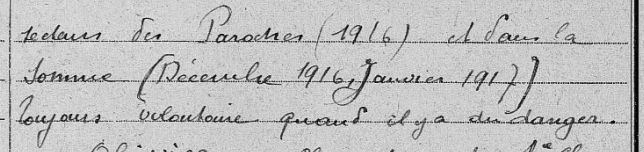 secteurs des Paroches (1916) et dans la
Somme (Décembre 1916, Janvier 1917)
toujours volontaire quand il y a du danger.